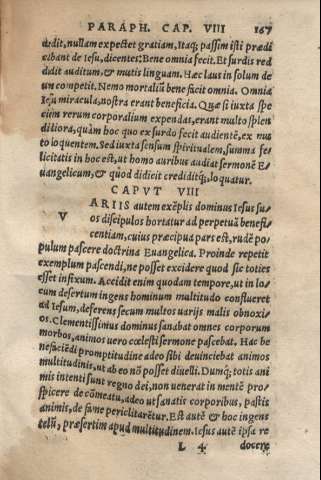 PARAPH. CAP. VIII 167
dedit, nullam expectet gratiam, Itaq; passim isti prædi
cabant de Iesu, dicentes: Bene omnia fecit. Et surdis red
didit auditum, & mutis linguam. Hæc laus in solum de
um competit. Nemo mortaliũ bene facit omnia. Omnia
Iesu miracula, nostra erant beneficia. Quæ si iuxta spe
ciem rerum corporalium expendas, erant multo splen
ditiora, quàm hoc quo ex surdo fecit audientẽ, ex mu
to loquentem. Sed iuxta sensum spiritualem, summa fe
licitatis in hoc est, ut homo auribus audiat sermonẽ E/
uangelicum, & quod didicit crediditq́;, loquatur.
CAPVT VIII
V ARIIS autem exẽplis dominus Iesus su/
os discipulos hortatur ad perpetuã benefi/
centiam, cuius præcipua pars est, rudẽ po/
pulum pascere doctrina Euangelica. Proinde repetit
exemplum pascendi, ne posset excidere quod sic toties
esset infixum. Accidit enim quodam tempore, ut in lo/
cum desertum ingens hominum multitudo conflueret
ad Iesum, deferens secum multos uarijs malis obnoxi/
os. Clementissimus dominus sanabat omnes corporum
morbos, animos uero cœlesti sermone pascebat. Hac be
nefaciẽdi promptitudine adeo sibi deuinciebat animos
multitudinis, ut ab eo nõ posset diuelli. Dumq́; totis ani
mis intenti sunt regno dei, non uenerat in mentẽ pro/
spicere de cõmeatu, adeo ut sanatis corporibus, pastis
animis, de fame periclitarẽtur. Est autẽ & hoc ingens
telũ, præsertim apud multitudinem. Iesus autẽ ipsa re
L 4 docere